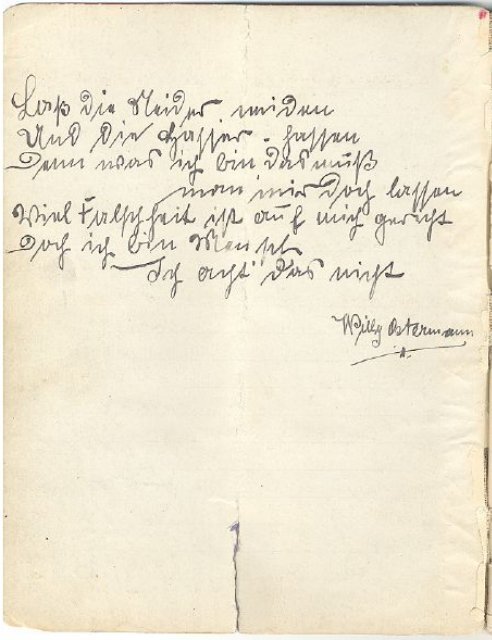 Laß die Neider neiden
Und die Hasser - hassen
Denn was ich bin das muß
man mir doch lassen
Viel Falschheit ist auf mich gericht
Doch ich bin Mensch
Ich acht' das nicht
Willy Ostermann